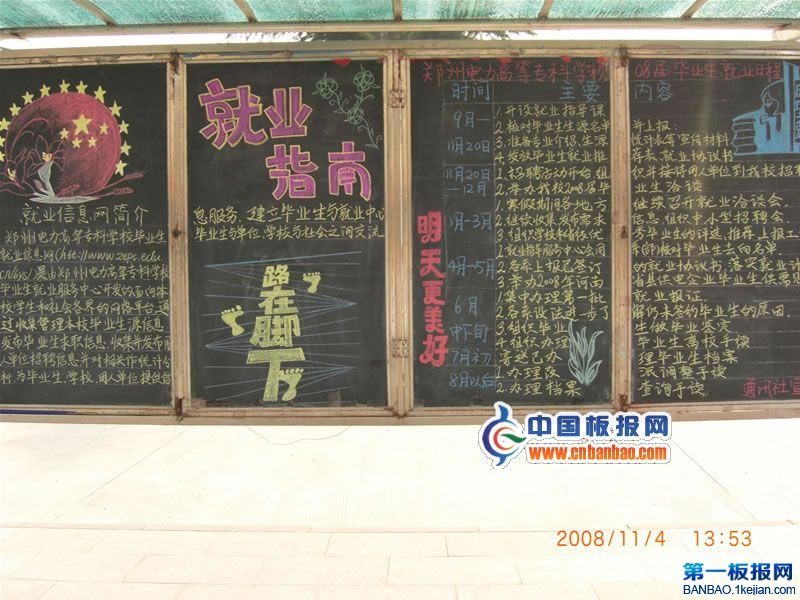 就业信息网简介
郑州电力高等专科学校毕业生
就业信息网(http://www.zepc.edu.
cn/bys/)是由郑州电力高等专科学校
毕业生就业服务中心开发的面向本
校学生和社会各界的网络平台,通
过收集管理本校毕业生源信息
发布毕业生求职信息,收集并发布用
人单位招聘信息并对相关作统计分
析,为毕业生、学校、用人单位提供信
就业
指南
息服务,建立毕业生与就业中心
毕业生与单位,学校与社会之间交流
路在脚下
明天更美好
郑州电力高等专科学校 08届毕业生就业日程
时间 主要内容
9月—
11月20日
11月20日
—12月
1月-3月
4月-5月
6月
中下旬
7月初
8月以后
1.开设就业指导课
2.核对毕业生生源名单 并上报:
3.准备专业介绍、生源
4.发放毕业生就业推 荐表、就业协议书
1.招聘活动开始,组 织并接待用人单位到我校招
2.举办我校2008届毕 业生洽谈
1.寒假期间各地方 继续召开就业洽谈会.
2.继续收集发布需求 信息,组织中小型招聘会.
3.组织学校和省级优 秀毕业生的评选、推荐上报工
1.就业指导服务中心会同
2.各系上报已签订 的就业协议书,落实就业计
3.举办2008年河南 省县供电企业毕业生供需
1.集中办理第一批 就业报证.
2.各系设法进一步了 解仍未签约毕业生的原因.
3.组织毕业 生做毕业鉴定
1.组织办理 毕业生离校手续
寄送已办 理毕业生档案
1.办理改 派调整手续
2.办理档案 查询手续
通讯社宣
中国板报网
www.cnbanbao.com
2008/11/4 13:53
第一板报网
BANBAO.1kejian.com